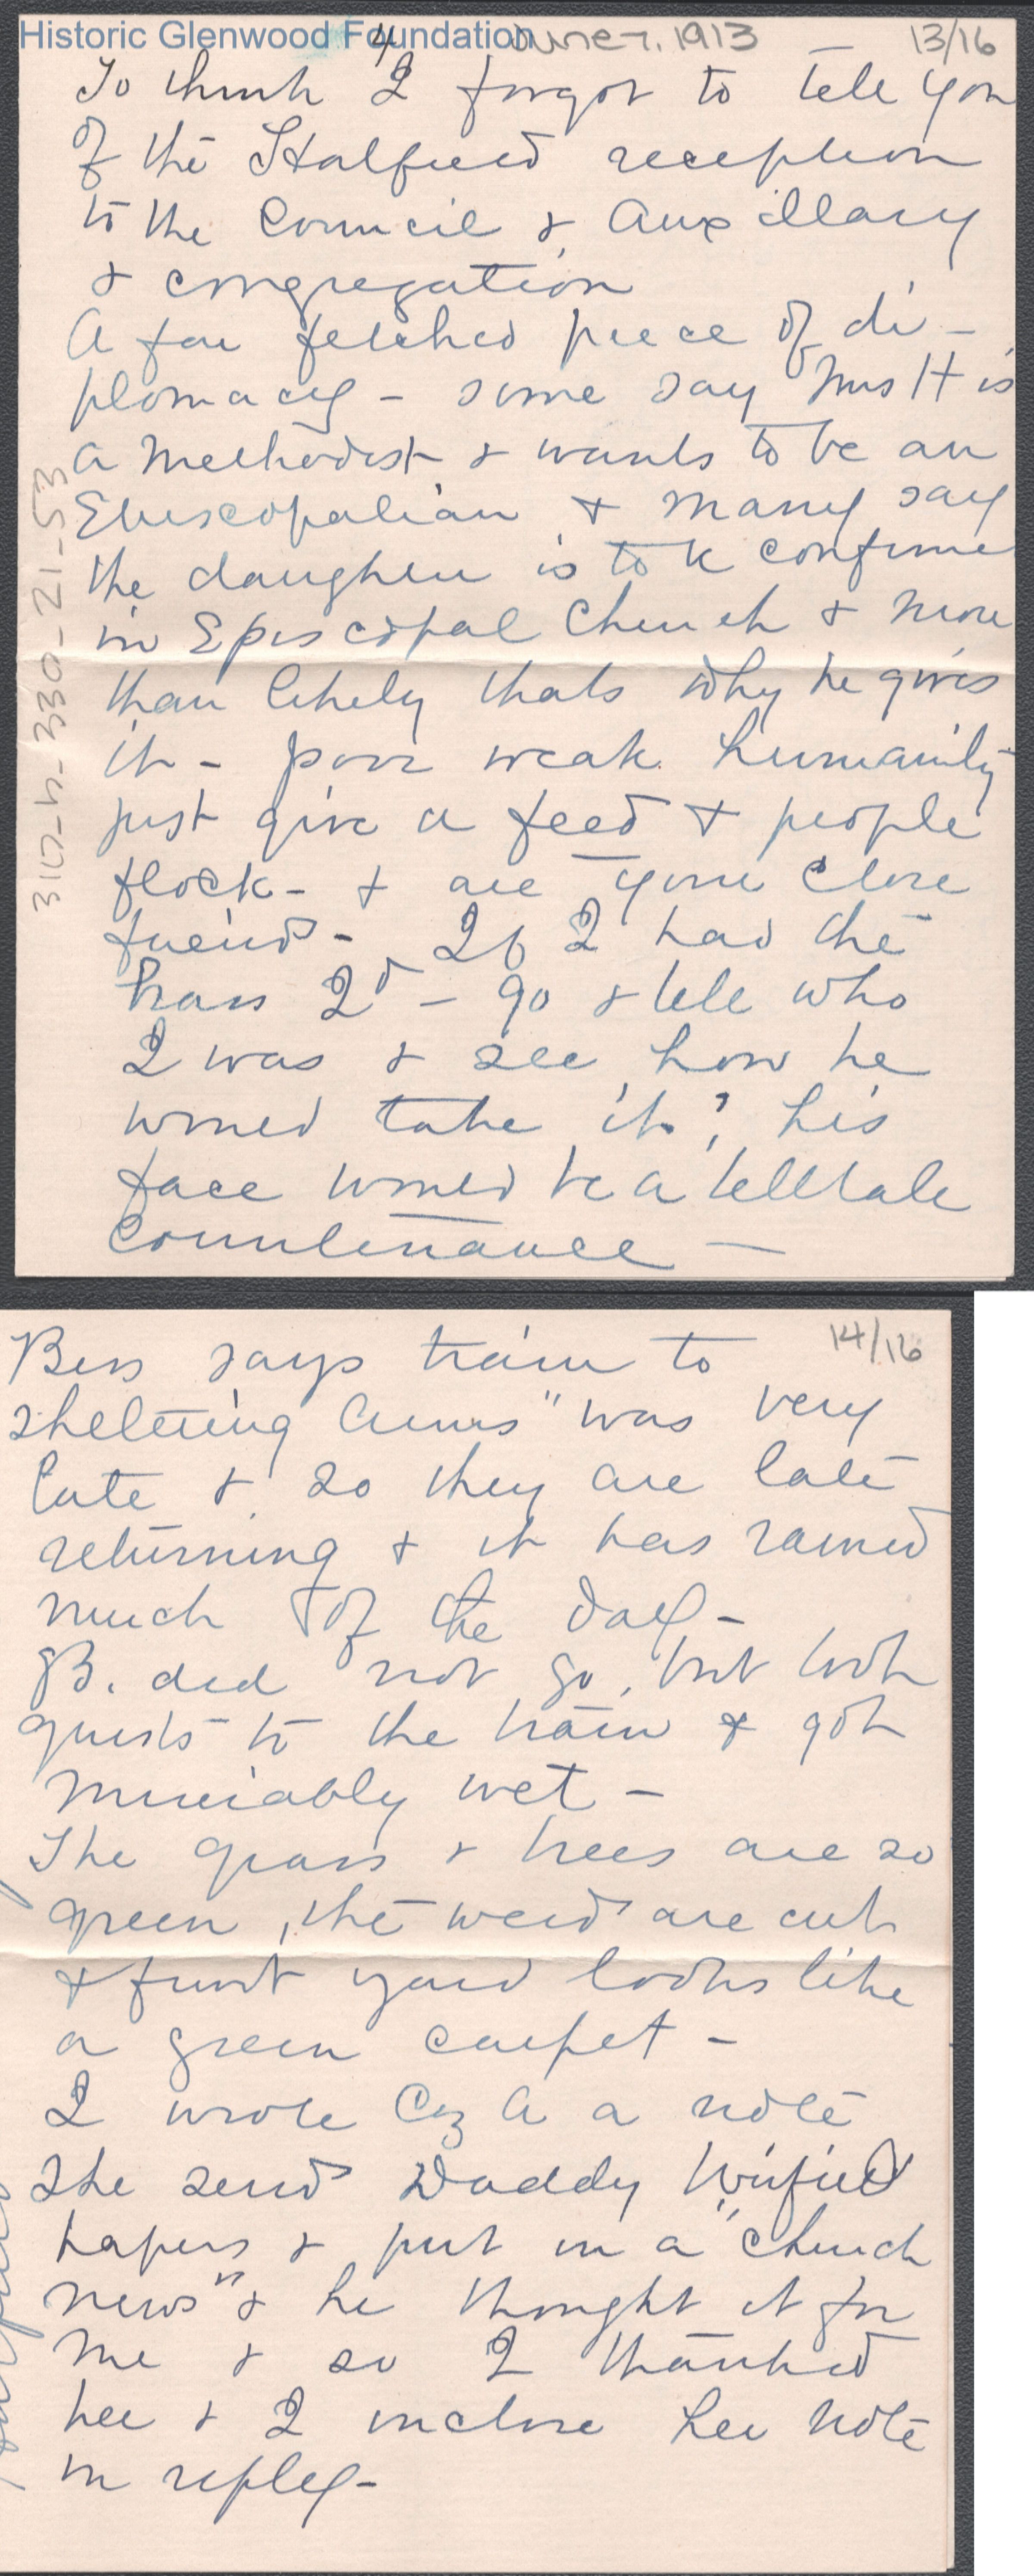 Historic Glenwood Foundation
4 June 7. 1913 13/16
To think I forgot to tell you
of the Halfield reception
to the Council & Auxillary
& congregation
A far fetched piece of di-
plomacy - some say Mrs H is
a Methodist & wants to be an
Episcopalian & many say
the daughter is to be confirme
in Episcopal Church & more
than likely thats why he gives
it - poor weak humanity
just give a feed & people
flock - & are your close
friends - If I had the
brass I'd - go & tell who
I was & see how he
would take it; his
face would be a telltale
countenance -
310-h-330-21-53
14/16
Bess says train to
sheltering Arms" was very
late & so they are late
returning & it has rained
much of the day -
B. did not go, but took
guests to the train & got
miserably wet -
The grass & trees are so
green, the weeds are cut
& front yard looks like
a green carpet -
I wrote Coz A a note
She sends Daddy
papers & put in a "church
news" & he thought it for
me & so I thanked
her & I inclose her note
in reply -